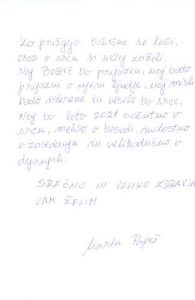 Ko prižgejo božične se luči,
vsak v srcu si nekaj zaželi.
Naj Božič bo prijazen, naj bodo
prijazni v njem ljudje, naj misli
bodo iskrene in veselo bo srce.
Naj bo leto 2021 sočutno v
srcu, mehko v besedi, milostno
v zavedanju in velikodušno v
dejanjih.
SREČNO IN VELIKO ZDRAVJA
VAM ŽELIM